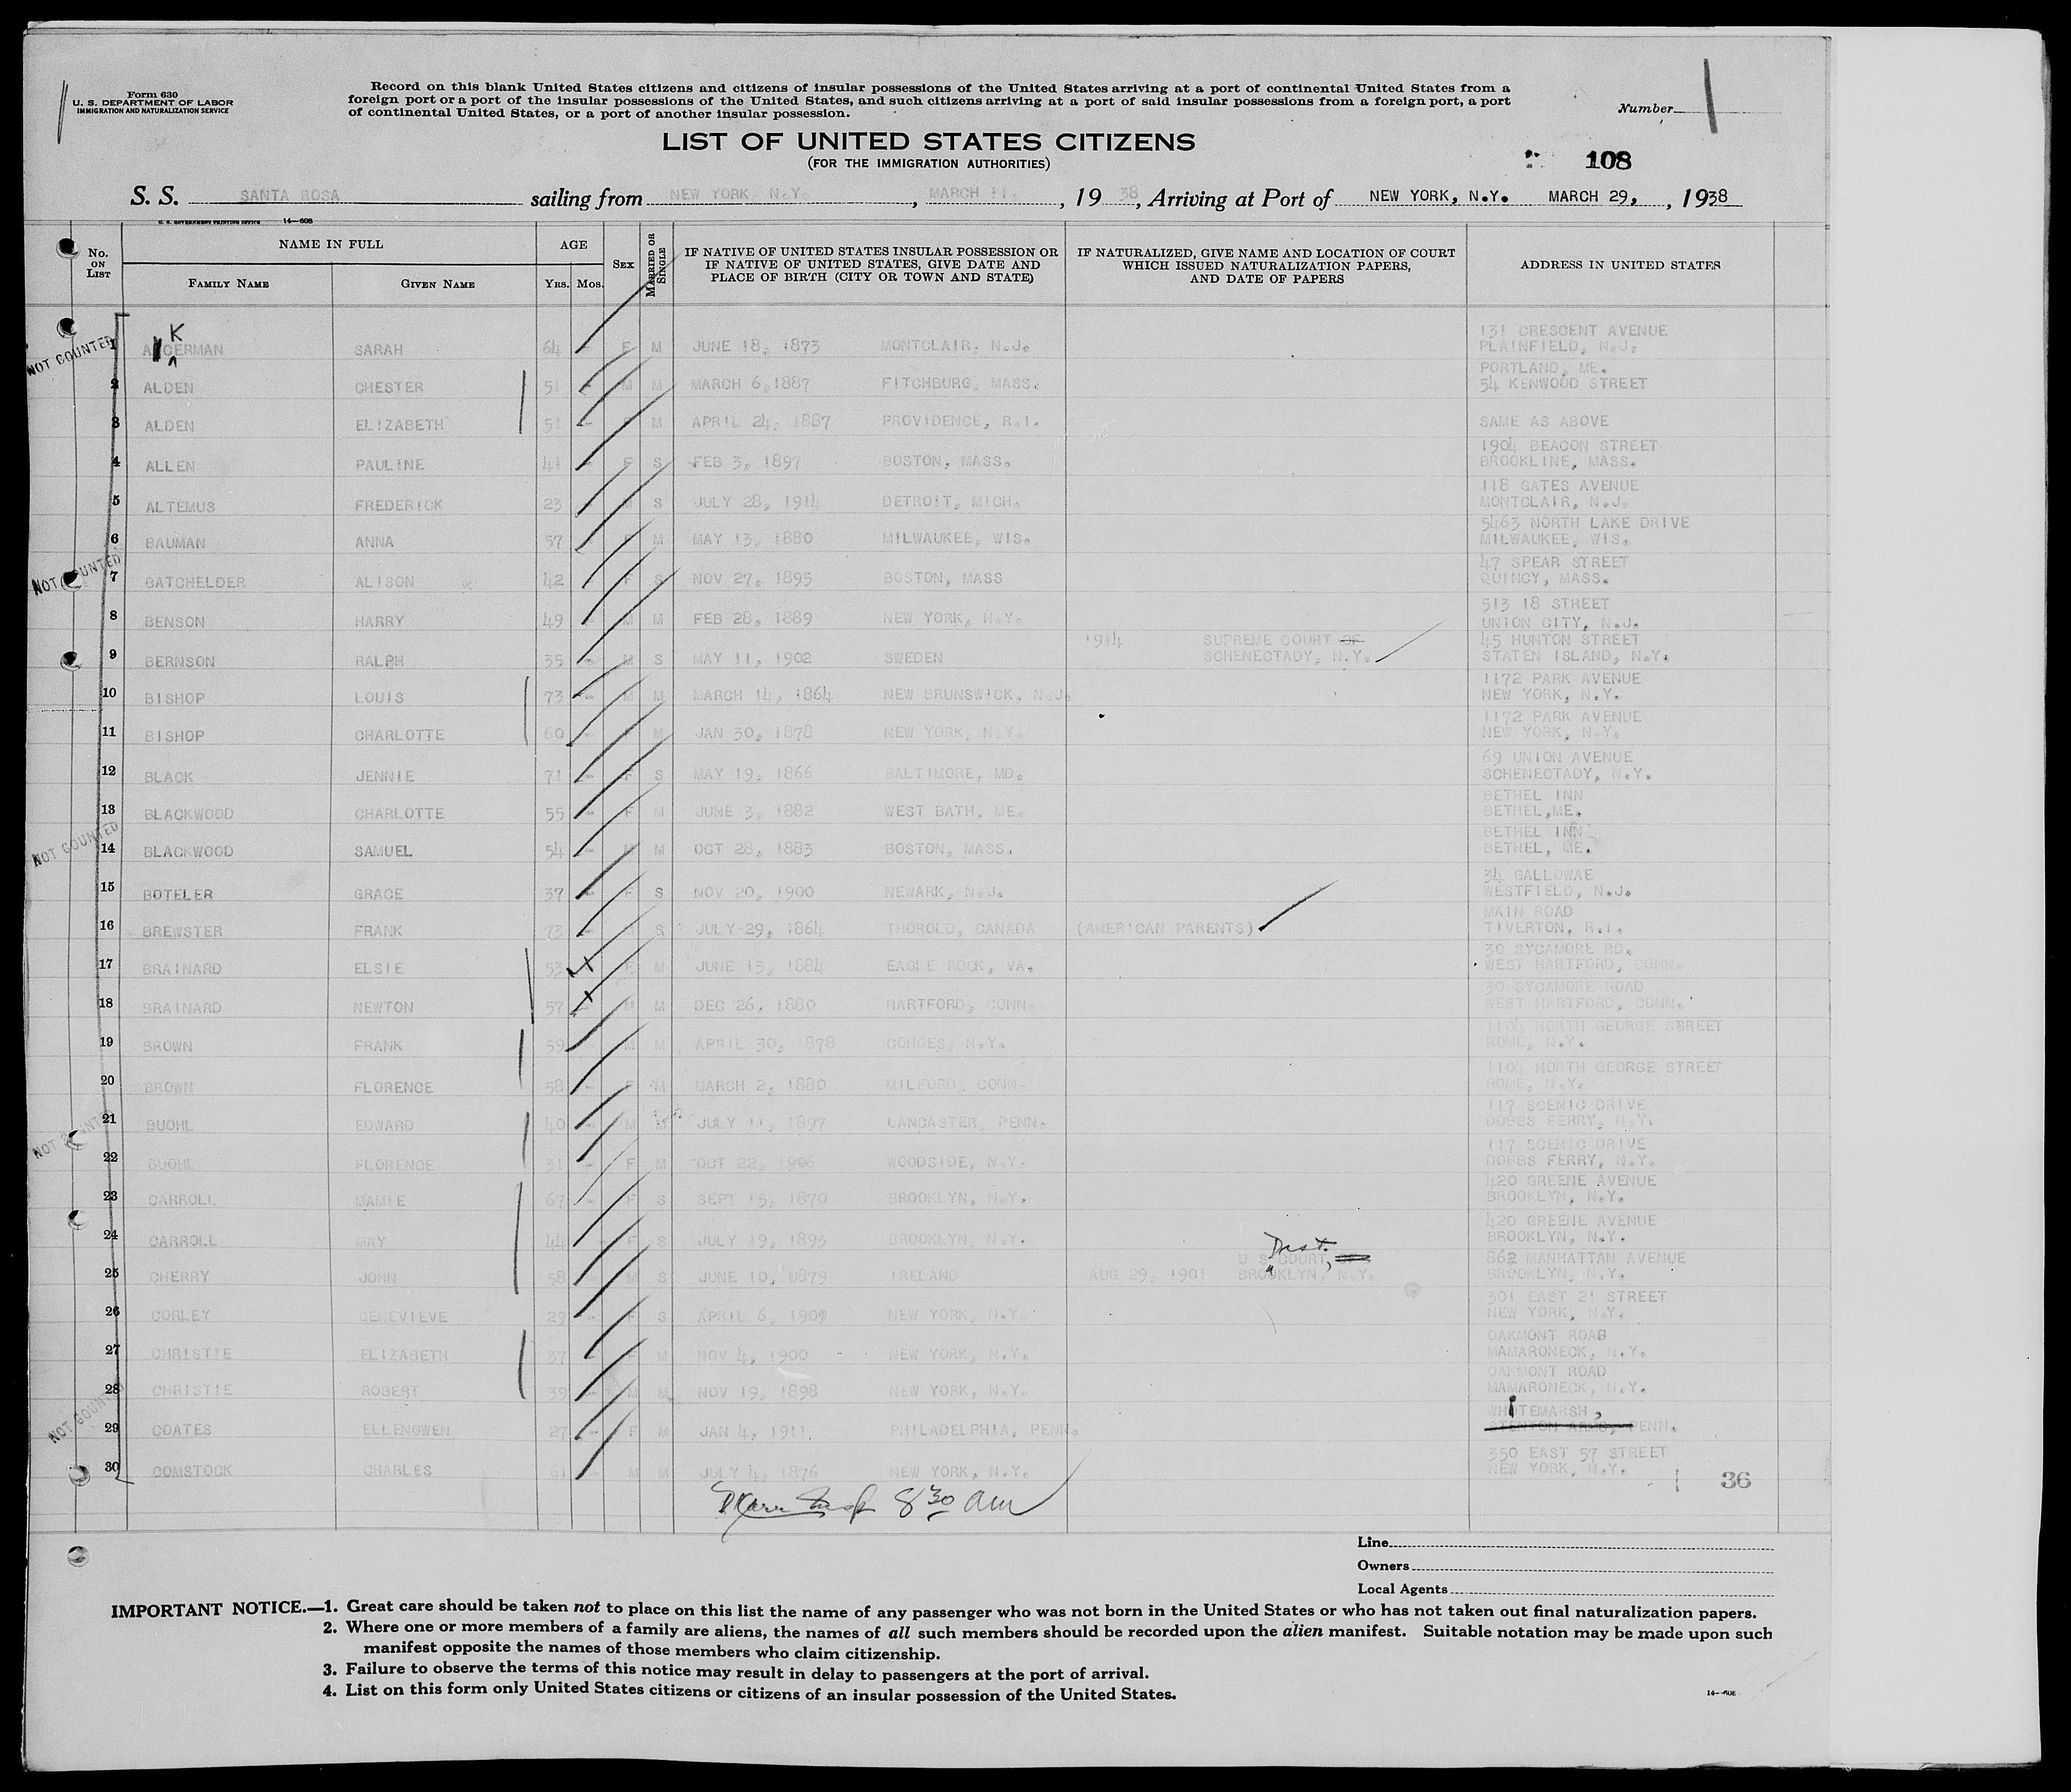 Form 630
U. S. DEPARTMENT OF LABOR
IMMIGRATION AND NATURALIZATION SERVICE
Record on this blank United States citizens and citizens of insular possessions of the United States arriving at a port of continental United States from a
foreign port or a port of the insular possessions of the United States, and such citizens arriving at a port of said insular possessions from a foreign port, a port
of continental United States, or a port of another insular possession.
Number 1
LIST OF UNITED STATES CITIZENS
(FOR THE IMMIGRATION AUTHORITIES)
108
S. S. SANTA ROSA sailing from NEW YORK, N.Y. , MARCH 11. , 19 38, Arriving at Port of NEW YORK, N.Y. MARCH 29, , 1938
U. S. GOVERNMENT PRINTING OFFICE 14—608
No. ON LIST
NAME IN FULL
FAMILY NAME
GIVEN NAME
AGE
YRS. MOS.
SEX
MARRIED OR SINGLE
IF NATIVE OF UNITED STATES INSULAR POSSESSION OR
IF NATIVE OF UNITED STATES, GIVE DATE AND
PLACE OF BIRTH (CITY OR TOWN AND STATE)
IF NATURALIZED, GIVE NAME AND LOCATION OF COURT
WHICH ISSUED NATURALIZATION PAPERS,
AND DATE OF PAPERS
ADDRESS IN UNITED STATES
NOT COUNTED
K
131 CRESCENT AVENUE
1 ACERMAN SARAH 64 - F M JUNE 18, 1873 MONTCLAIR, N.J. PLAINFIELD, N.J.
PORTLAND, ME.
2 ALDEN CHESTER 51 - M M MARCH 6,1887 FITCHBURG, MASS. 54 KENWOOD STREET
3 ALDEN ELIZABETH 51 - M APRIL 24, 1887 PROVIDENCE, R.I. SAME AS ABOVE
1904 BEACON STREET
4 ALLEN PAULINE 41 - F S FEB 3, 1897 BOSTON, MASS. BROOKLINE, MASS.
118 GATES AVENUE
5 ALTEMUS FREDERICK 23 - M S JULY 28, 1914 DETROIT, MICH. MONTCLAIR, N.J.
5463 NORTH LAKE DRIVE
6 BAUMAN ANNA 57 - F M MAY 13, 1880 MILWAUKEE, WIS. MILWAUKEE, WIS.
NOT COUNTED
47 SPEAR STREET
7 BATCHELDER ALISON 42 - F S NOV 27, 1895 BOSTON, MASS QUINCY, MASS.
513 18 STREET
8 BENSON HARRY 49 - M M FEB 28, 1889 NEW YORK, N.Y. UNION CITY, N.J.
1914 SUPREME COURT OF 45 HUNTON STREET
9 BERNSON RALPH 35 - M S MAY 11, 1902 SWEDEN SCHENECTADY, N.Y. STATEN ISLAND, N.Y.
1172 PARK AVENUE
10 BISHOP LOUIS 73 - M M MARCH 14, 1864 NEW BRUNSWICK, N.J. NEW YORK, N.Y.
1172 PARK AVENUE
11 BISHOP CHARLOTTE 60 - F M JAN 30, 1878 NEW YORK, N.Y. NEW YORK, N.Y.
69 UNION AVENUE
12 BLACK JENNIE 71 - F S MAY 19, 1866 BALTIMORE, MD. SCHENECTADY, N.Y.
BETHEL INN
13 BLACKWOOD CHARLOTTE 55 - F M JUNE 3, 1882 WEST BATH, ME. BETHEL,ME.
NOT COUNTED
BETHEL INN
14 BLACKWOOD SAMUEL 54 - M M OCT 28, 1883 BOSTON, MASS. BETHEL, ME.
34 GALLOWAE
15 BOTELER GRACE 37 - F S NOV 20, 1900 NEWARK, N.J. WESTFIELD, N.J.
MAIN ROAD
16 BREWSTER FRANK 73 - M S JULY-29, 1864 THOROLD, CANADA (AMERICAN PARENTS) TIVERTON, R.I.
30 SYCAMORE RD.
17 BRAINARD ELSIE 53 F M JUNE 13, 1884 EAGLE ROCK, VA. WEST HARTFORD, CONN.
30 SYCAMORE ROAD
18 BRAINARD NEWTON 57 M M DEC 26, 1880 HARTFORD, CONN. WEST HARTFORD, CONN.
1104 NORTH GEORGE STREET
19 BROWN FRANK 59 - M M APRIL 30, 1878 COHOES, N.Y. ROME, N.Y.
1104 NORTH GEORGE STREET
20 BROWN FLORENCE 58 - F M MARCH 2, 1880 MILFORD, CONN. ROME, N.Y.
117 SCENIC DRIVE
21 BUOHL EDWARD 40 - M M JULY 11, 1897 LANCASTER, PENN. DOBBS FERRY, N.Y.
117 SCENIC DRIVE
22 BUOHL FLORENCE 31 - F M OCT 22, 1906 WOODSIDE, N.Y. DOBBS FERRY, N.Y.
420 GREENE AVENUE
23 CARROLL MAMIE 67 - F S SEPT 15, 1870 BROOKLYN, N.Y. BROOKLYN, N.Y.
420 GREENE AVENUE
24 CARROLL MAY 44 - F S JULY 19, 1893 BROOKLYN, N.Y. BROOKLYN, N.Y.
Dist.
U S COURT, 862 MANHATTAN AVENUE
25 CHERRY JOHN 58 - M S JUNE 10, 1879 IRELAND AUG 29, 1901 BROOKLYN, N.Y. BROOKLYN, N.Y.
301 EAST 21 STREET
26 CORLEY GENEVIEVE 29 - F S APRIL 6, 1909 NEW YORK, N.Y. NEW YORK, N.Y.
OAKMONT ROAD
27 CHRISTIE ELIZABETH 37 - F M NOV 4, 1900 NEW YORK, N.Y. MAMARONECK, N.Y.
OAKMONT ROAD
28 CHRISTIE ROBERT 39 - M M NOV 19, 1898 NEW YORK, N.Y. MAMARONECK, N.Y.
NOT COUNTED
WHITEMARSH,
29 COATES ELLENGWEN 27 - F M JAN 4, 1911 PHILADELPHIA, PENN. STENTON ARMS, PENN.
350 EAST 57 STREET
30 COMSTOCK CHARLES 61 - M M JULY 4, 1876 NEW YORK, N.Y. NEW YORK, N.Y.
36
8 30 am
Line
Owners
Local Agents
IMPORTANT NOTICE.—1. Great care should be taken not to place on this list the name of any passenger who was not born in the United States or who has not taken out final naturalization papers.
2. Where one or more members of a family are aliens, the names of all such members should be recorded upon the alien manifest. Suitable notation may be made upon such
manifest opposite the names of those members who claim citizenship.
3. Failure to observe the terms of this notice may result in delay to passengers at the port of arrival.
4. List on this form only United States citizens or citizens of an insular possession of the United States.
14—608